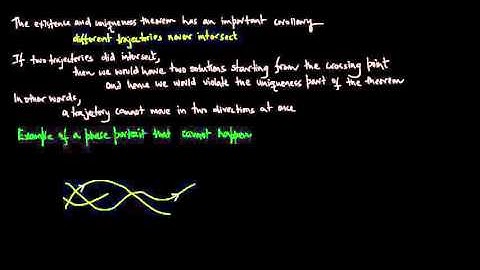 The existence and uniqueness theorem has an important corollary
different trajectories never intersect
If two trajectories did intersect,
then we would have two solutions starting from the crossing point
and hence we would violate the uniqueness part of the theorem
In other words,
a trajectory cannot move in two directions at once
Example of a phase portrait that cannot happen